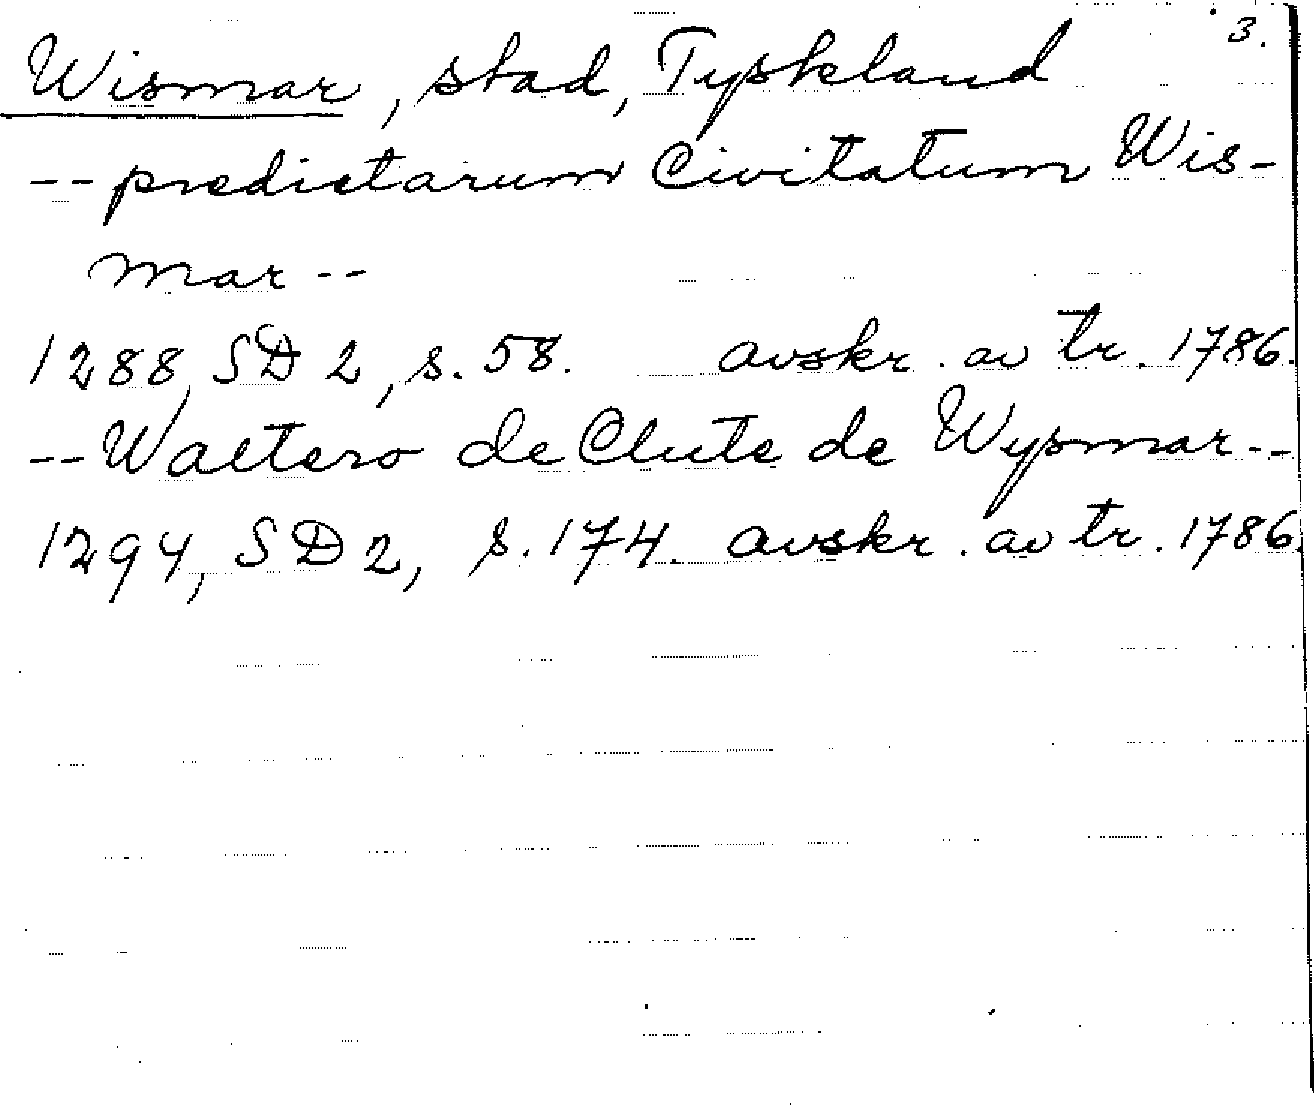 3.
Wismar, stad, Tyskland
-- predictarum Civitatum Wis-
mar --
1288, SD 2, s. 58. avskr. av tr. 1786.
-- Waltero de Clute de Wysmar --
1294, SD 2, s. 174. avskr. av tr. 1786.